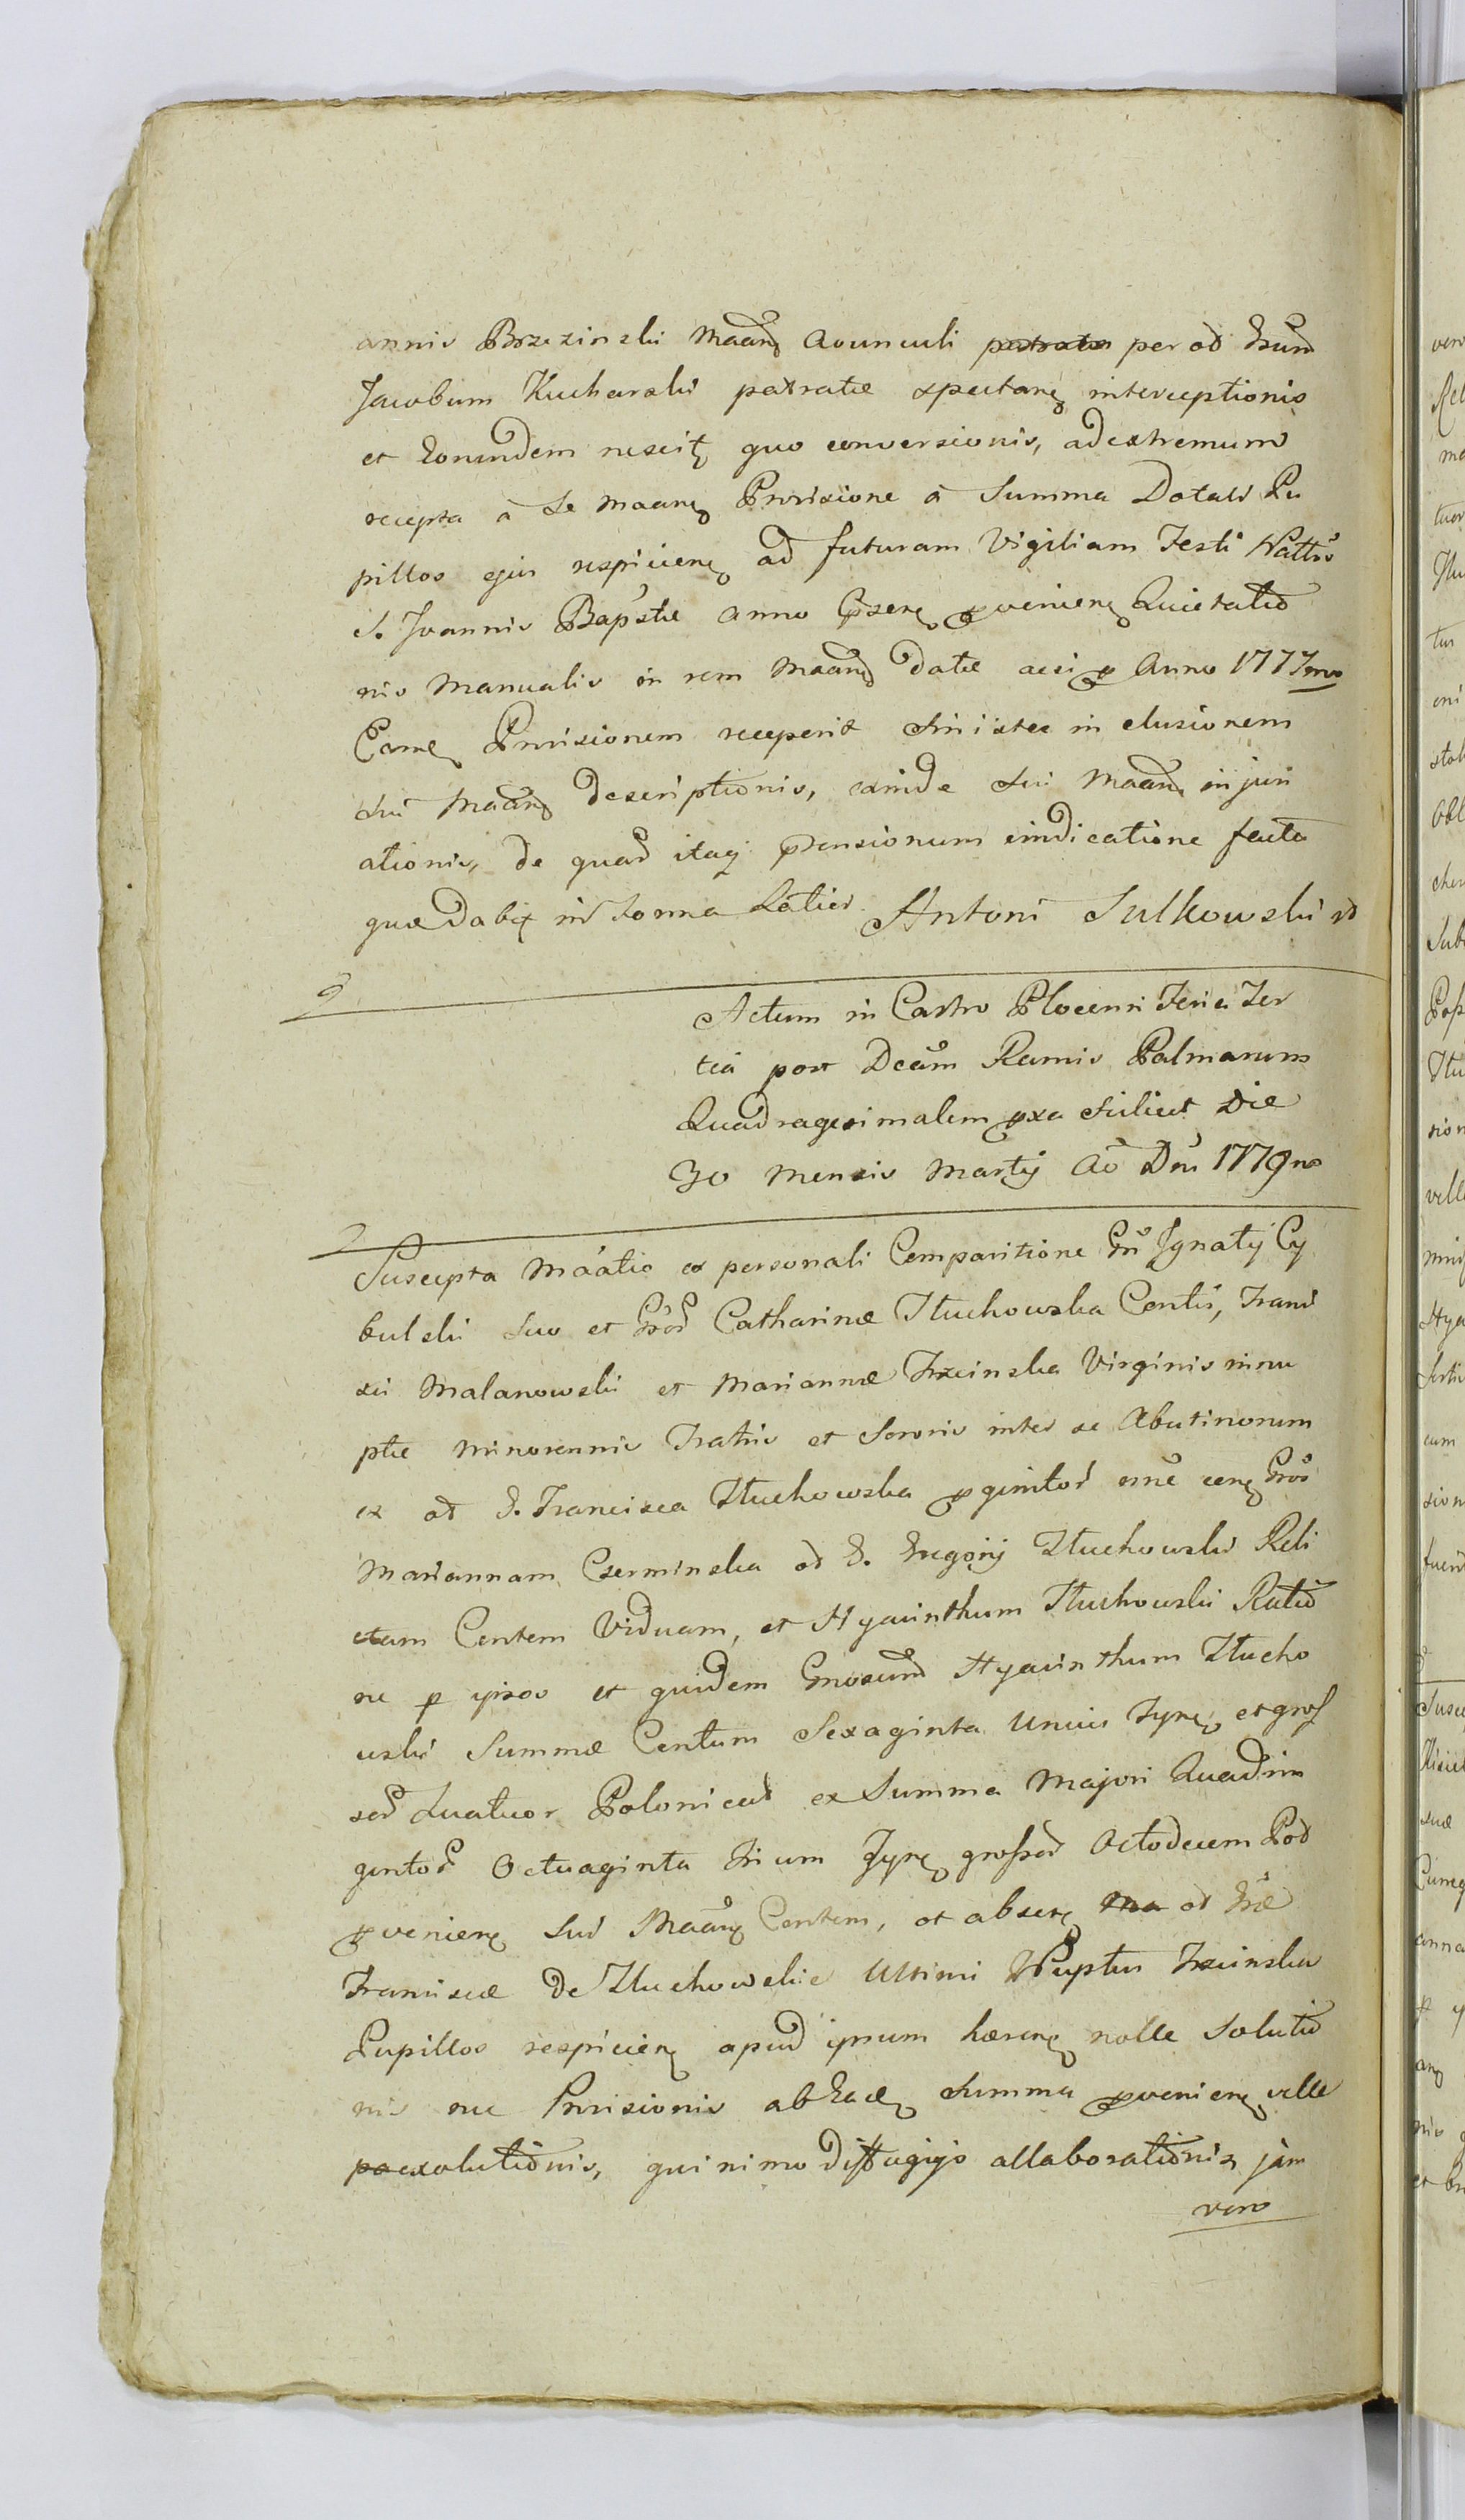 annis Brzezinski Maãñ avunculi patrata per od Gnũm
Jacobum Kucharski patratæ spectanę interceptionis
et Eorundem nescitę quo conversionis, ad extremum
recepta à Se Maanę Provisione à Summa Dotali Pu
pillos ejus respicienę ad futuram Vigiliam Festi Nattis
S. Joannis Bap'stæ anno Psenę pvenienę Quietatiõ
nis Manualis in rem Maanę datæ acsi p Anno 1777mo
Eamę Provisionem receperit sinistre in elusionem
Sui Maanę descriptionis, exinde Sui Maanę injuri
ationis, de quad itaq pensionum vindicatione facta
quæ dabit in Forma Latius Antoni Sulkowski
Actum in Castro Plocensi Feria Ter
tia post Dcãm Ramis Palmarum
Quadragesimalem pxa scilicet Die
30 Mensis Martij Aõ Dni 1779no
Suscepta Máátio ex personali Comparitione Gñi Ignatij Cy
bulski Suo et Gsoř Catharinæ Tłuchowska Contis, Franci
sci Malanowski et Mariannæ Trzcinska Virginis innu
ptæ Minorennis Fratris et Sororis inter se Abutinorum
ex od G. Francisca Tłuchowska pgenitoř omẽ cenę Gsos
Mariannam Czerminska od G. Gregorij Tłuchowski Reli
ctam Contem Viduam, et Hyacinthum Tłuchowski Ratiõ
ne p ipsos et quidem Gnosum Hyacinthum Tłucho
wski Summæ Centum Sexaginta Unius Tynę et gros
soř Quatuor Polonical ex Summa Majori Quadrin
gentoř Octuaginta Trium Tynę grossoř Octodecem Pod
pvenienę Sui Maanę Contem, et absenę od Gsæ
Franciscæ De Tłuchowskie Ultimi Vuptus Trzcinska
Pupillos respicienę apud ipsum hærenę nolle Solutiõ
nis nec Provisionis ab Eadę Summa pvenienę velle
exolutiõnis, quinimo diffugijs allaborationis, jam
vero